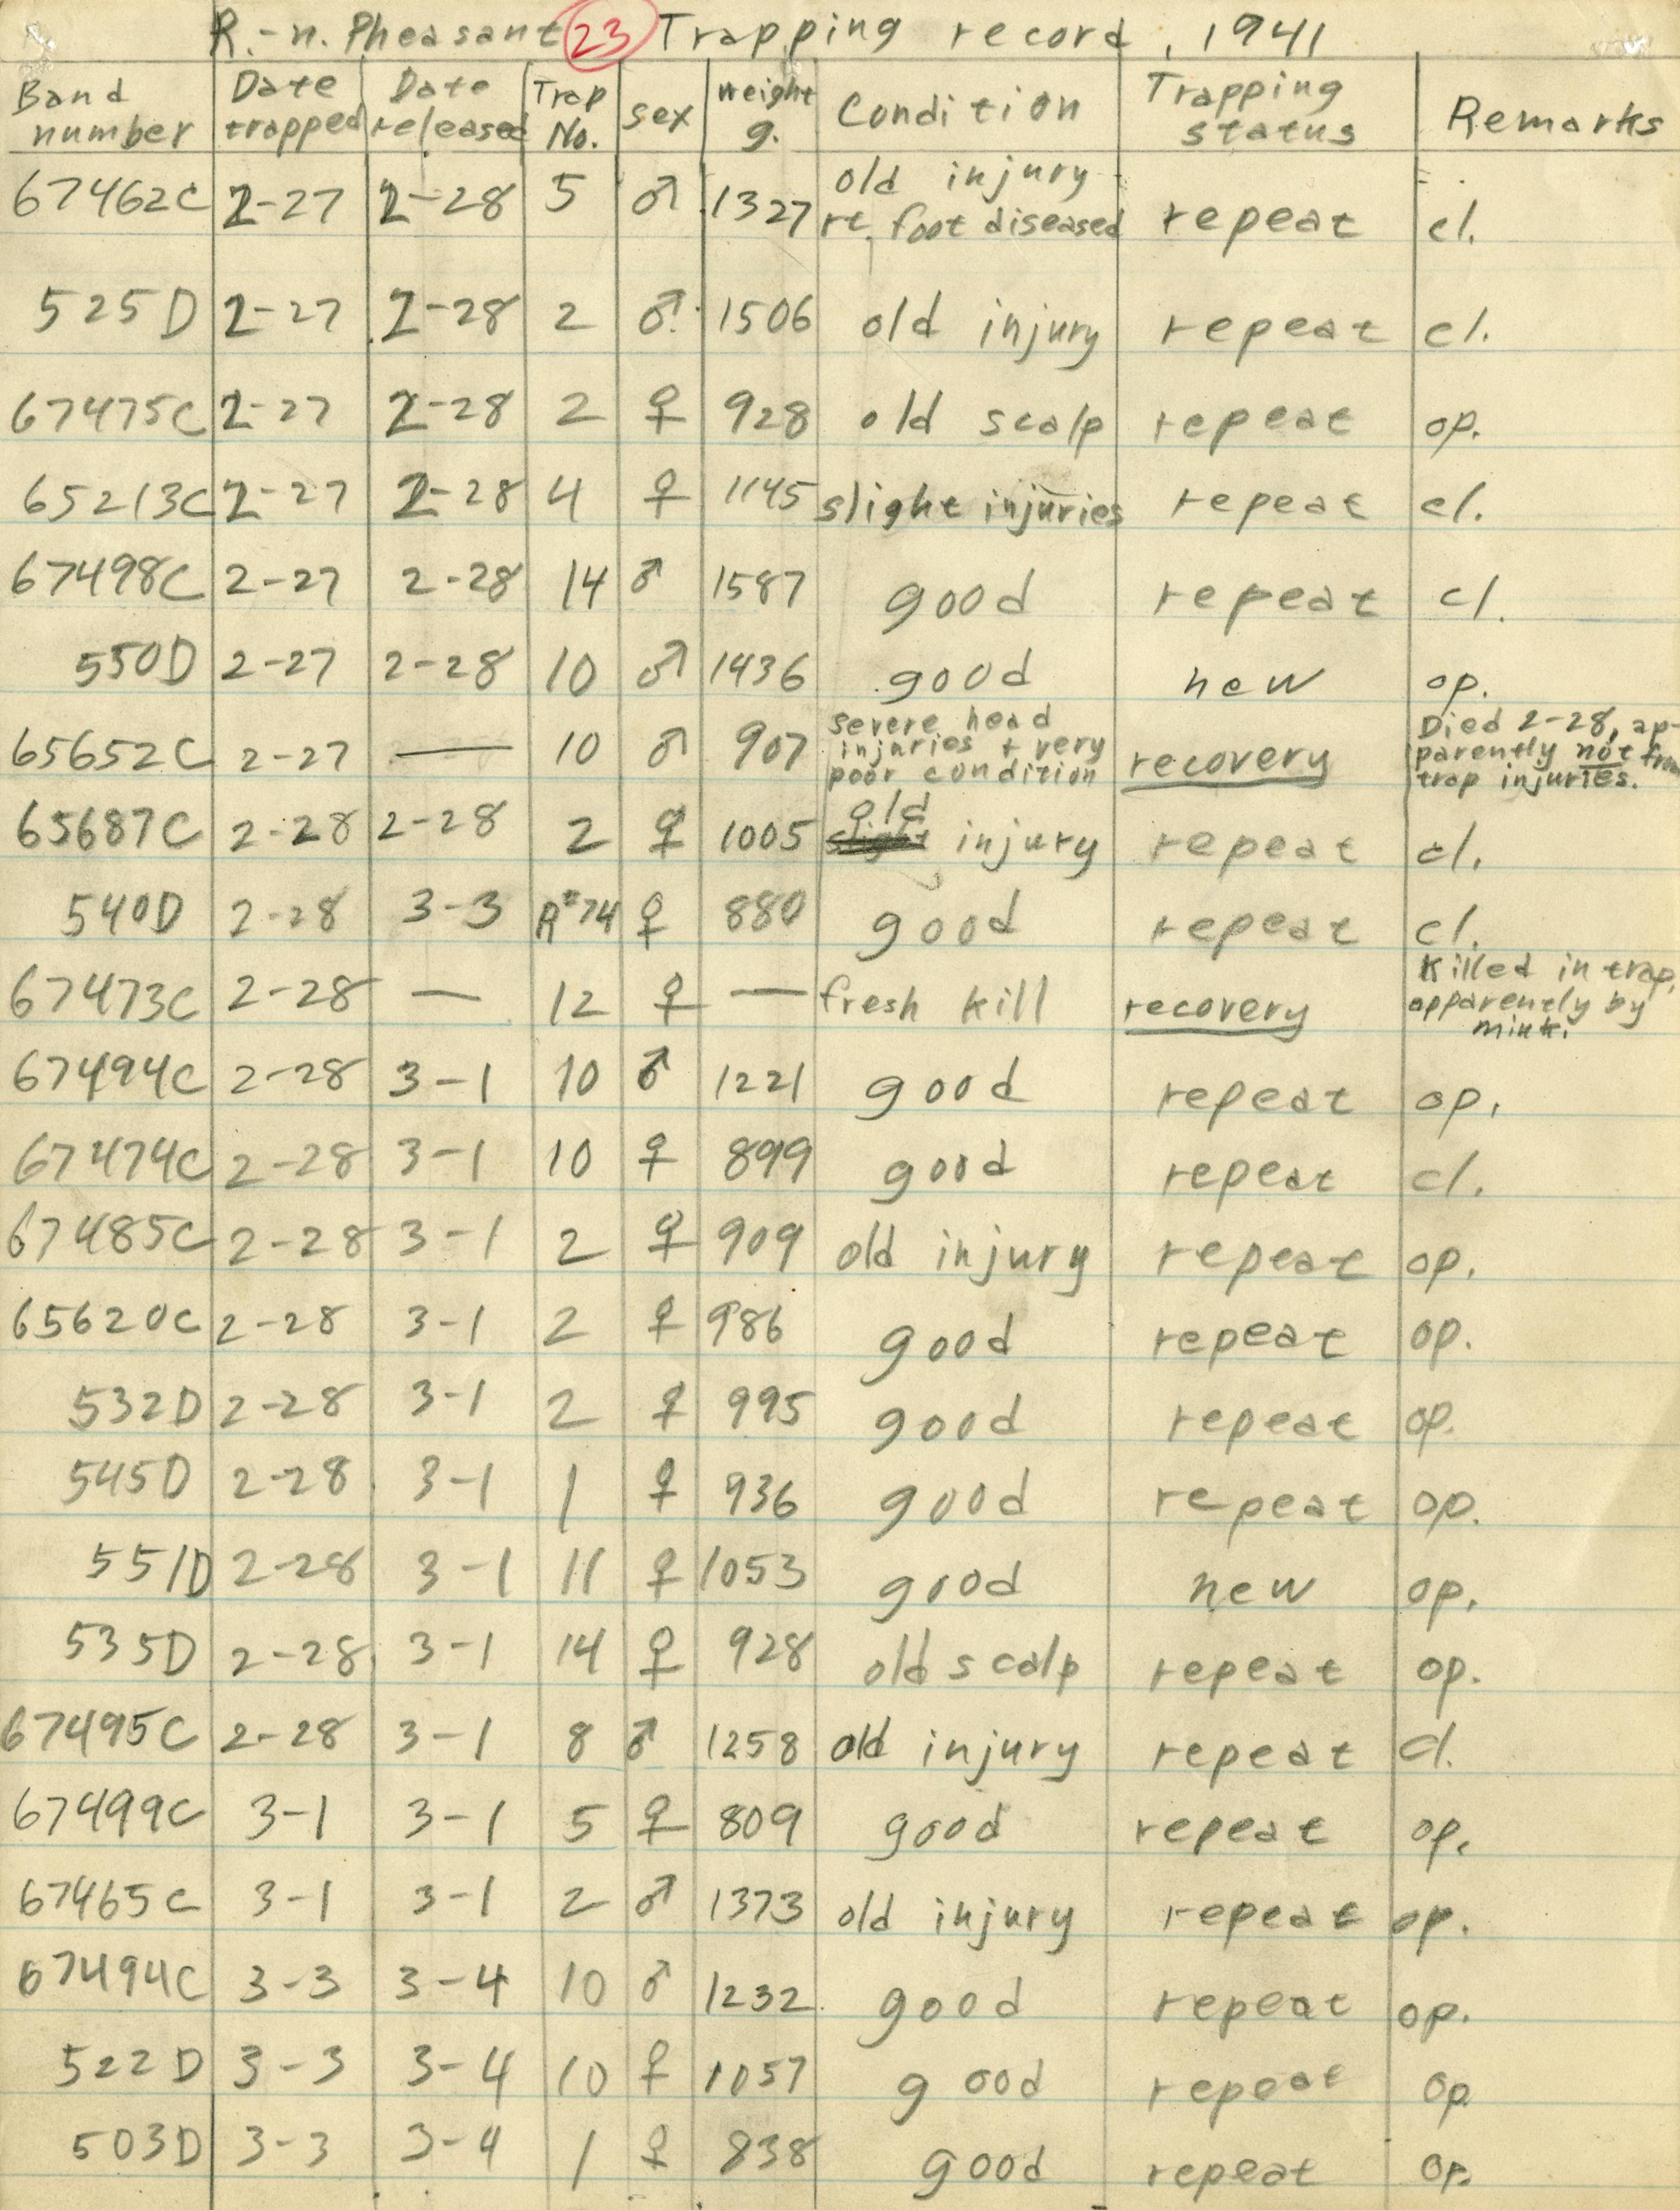 R.-n. Pheasant 23 Trapping record, 1941
Band number Date trapped Date released Trap No. sex weight g. Condition Trapping status Remarks
67462C 2-27 2-28 5 ♂ 1327 old injury rt. foot diseased repeat cl.
525D 2-27 2-28 2 ♂ 1506 old injury repeat cl.
67475C 2-27 2-28 2 ♀ 928 old scalp repeat op.
65213C 2-27 2-28 4 ♀ 1145 slight injuries repeat cl.
67498C 2-27 2-28 14 ♂ 1587 good repeat cl.
550D 2-27 2-28 10 ♂ 1436 good new op.
65652C 2-27 — 10 ♂ 907 severe head injuries + very poor condition recovery Died 2-28, apparently not from trap injuries.
65687C 2-28 2-28 2 ♀ 1005 old injury repeat cl.
540D 2-28 3-3 R#74 ♀ 880 good repeat cl.
67473C 2-28 — 12 ♀ — fresh kill recovery Killed in trap, apparently by mink.
67494C 2-28 3-1 10 ♂ 1221 good repeat op.
67474C 2-28 3-1 10 ♀ 899 good repeat cl.
67485C 2-28 3-1 2 ♀ 909 old injury repeat op.
65620C 2-28 3-1 2 ♀ 986 good repeat op.
532D 2-28 3-1 2 ♀ 995 good repeat op.
545D 2-28 3-1 1 ♀ 936 good repeat op.
551D 2-28 3-1 11 ♀ 1053 good new op.
535D 2-28 3-1 14 ♀ 928 old scalp repeat op.
67495C 2-28 3-1 8 ♂ 1258 old injury repeat cl.
67499C 3-1 3-1 5 ♀ 809 good repeat op.
67465C 3-1 3-1 2 ♂ 1373 old injury repeat op.
67494C 3-3 3-4 10 ♂ 1232 good repeat op.
522D 3-3 3-4 10 ♀ 1057 good repeat op
503D 3-3 3-4 1 ♀ 838 good repeat op.